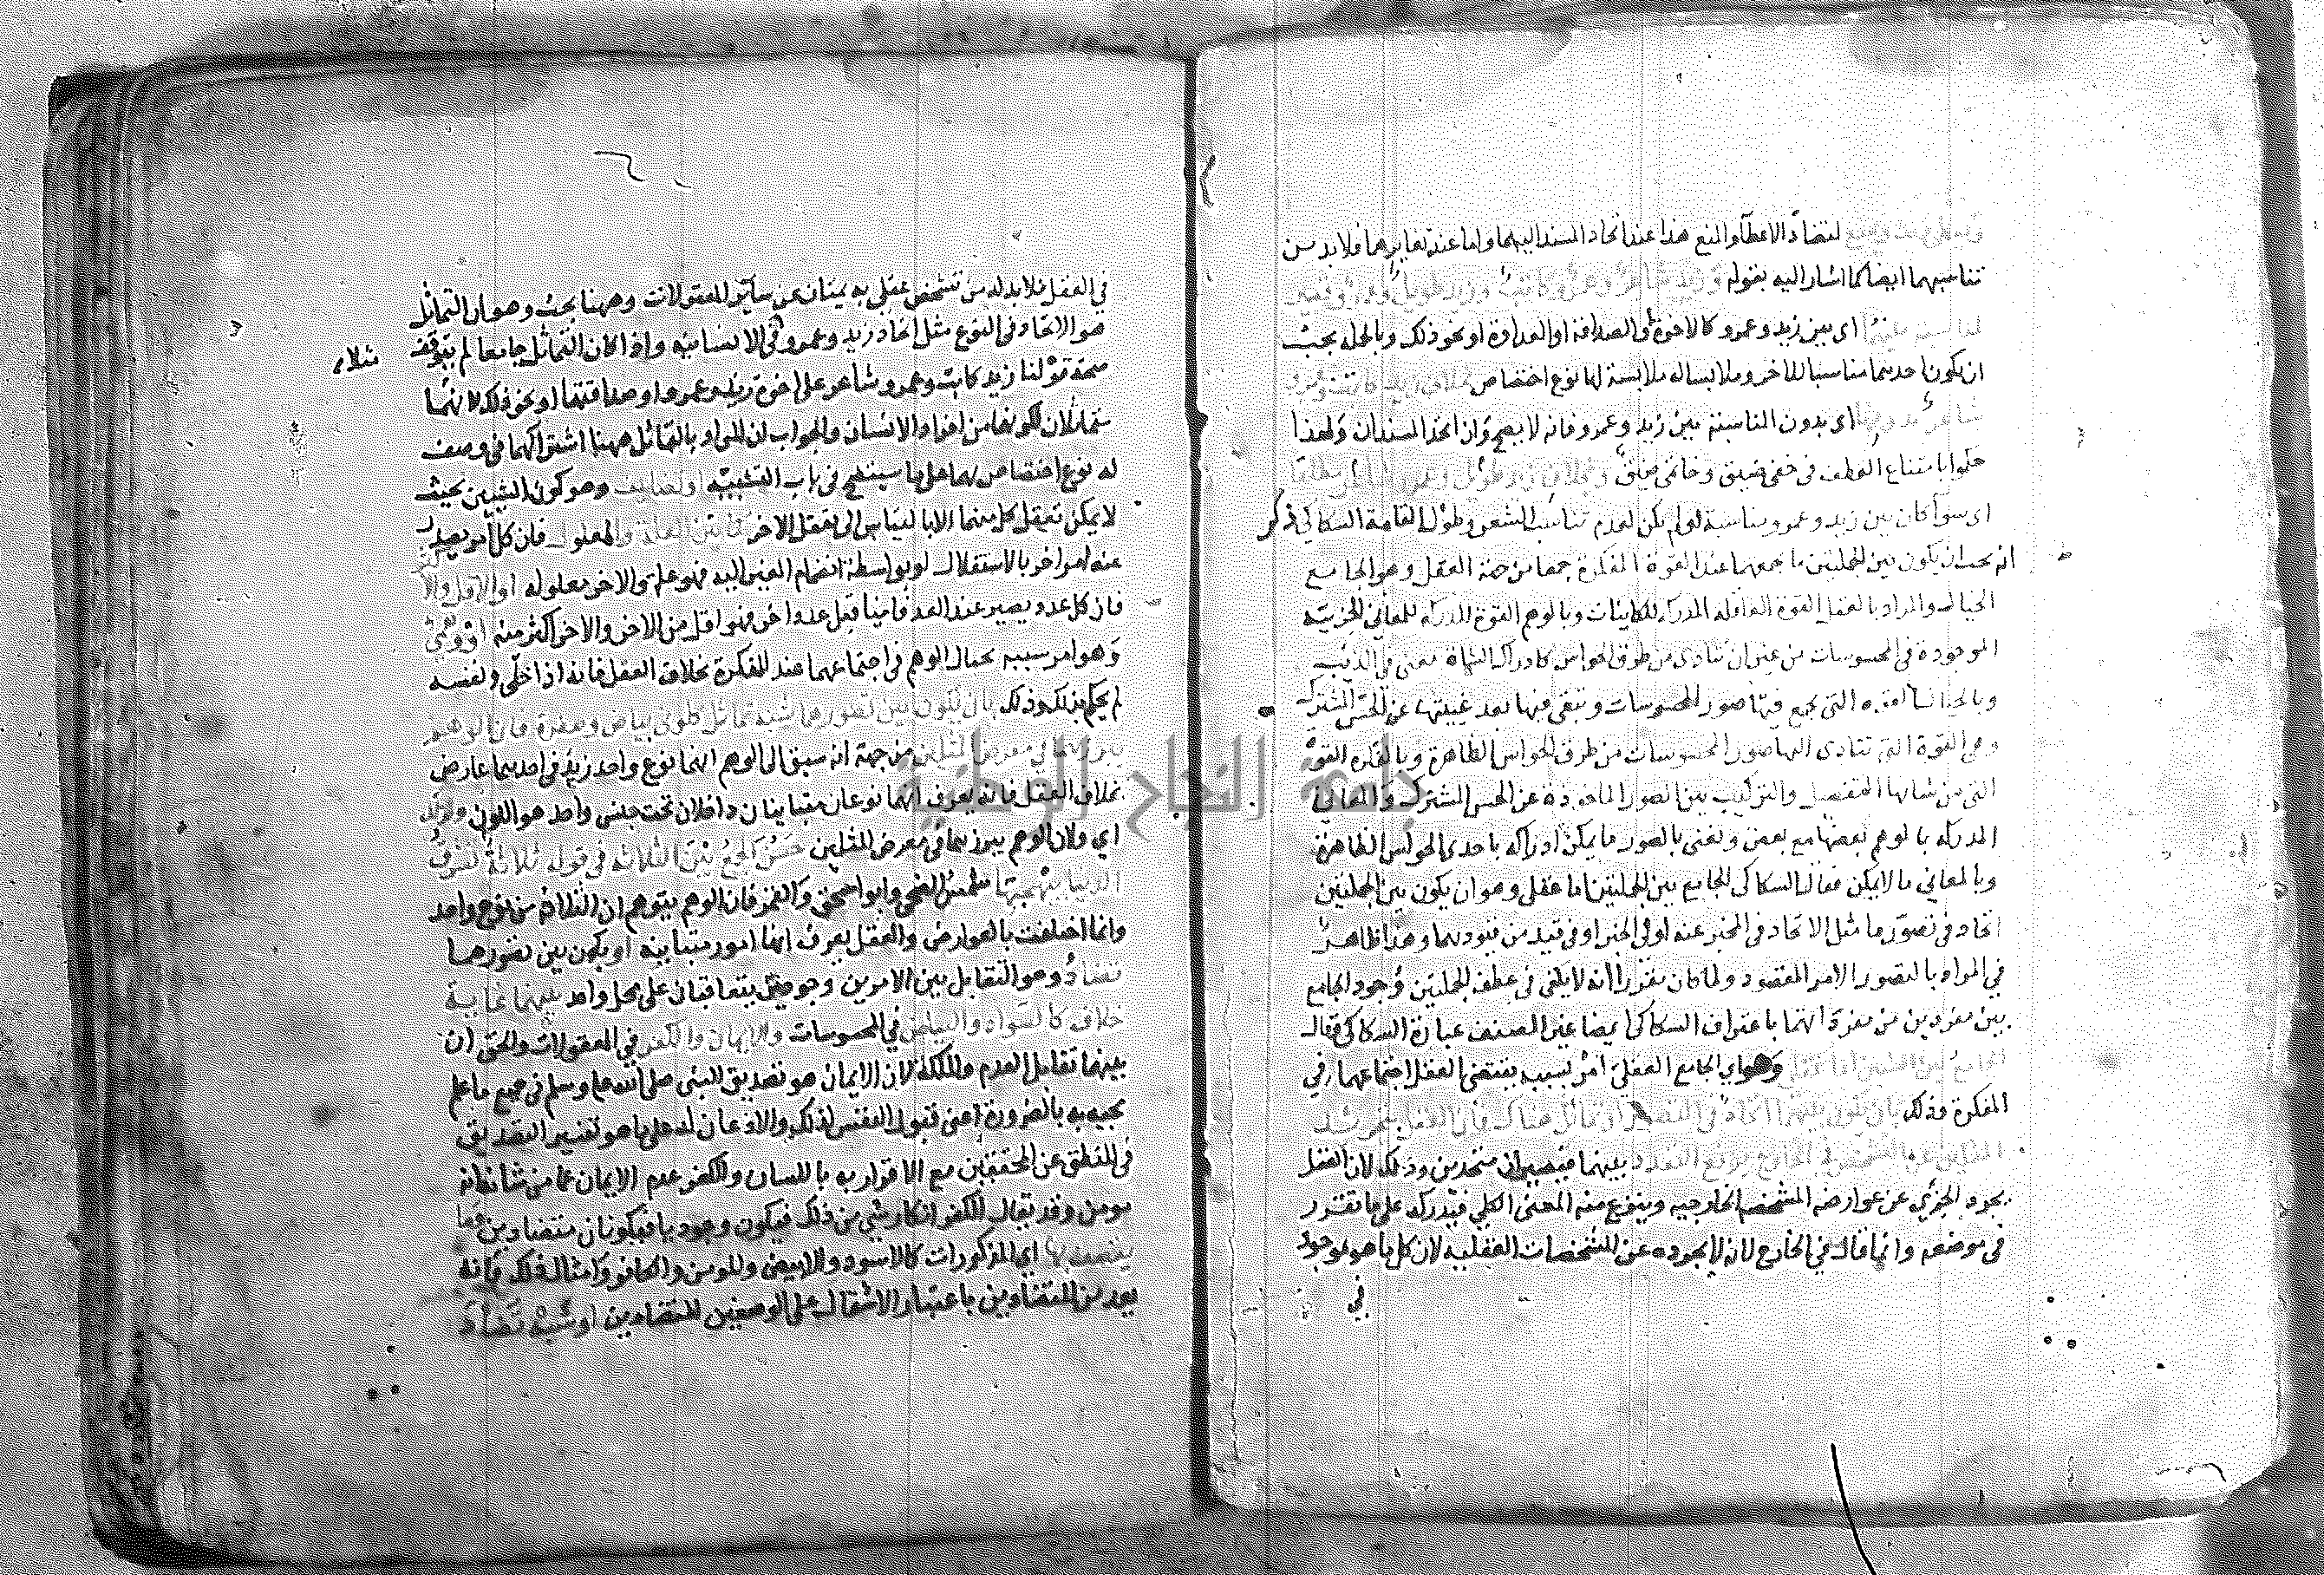 لتضاد الاعطآء والمنع هذا عند اتحاد المسند اليهما واما عند تغايرهما فلا بد من
تناسبهما ايضا كما اشار اليه بقوله وزيد شاعر وعمرو كاتب وزيد طويل وعمرو قصير
لمناسبة بينهما اى بين زيد وعمرو كالاخوة او الصداقة او العداوة او نحو ذلك وبالجملة يجب
ان يكون احدهما مناسبا للاخر وملابسا له ملابسة لها نوع اختصاص بخلاف زيد كاتب وعمرو
شاعر بدونها اى بدون المناسبة بين زيد وعمرو فانه لا يصح وان اتحد المسندان ولهذا
حكموا بامتناع العطف فى خفى ضيق وخاتمى ضيق وبخلاف زيد طويل وعمرو
اى سوآ كان بين زيد وعمرو مناسبة او لم يكن لعدم تناسب الشعر وطول القامة السكاكي ذكر
انه يجب ان يكون بين الجملتين ما يجمعهما عند القوة المفكرة جمعا من جهة العقل وهو الجامع
الخيال والمراد بالعقل القوة العاقلة المدركة للكليات وبالوهم القوة المدركة للمعاني الجزئية
الموجودة فى المحسوسات من غير ان تتادى من طرق الحواس كادراك الشاة معنى فى الذئب
وبالخيال القوة التى تجمع فيها صور المحسوسات وتبقى فيها بعد غيبتها عن الحس المشترك
وهى القوة التى تتادى اليها صور المحسوسات من طرق الحواس الظاهرة وبالمفكرة القوة
التى من شانها التفصيل والتركيب بين الصور الماخوذة عن الحس المشترك والمعاني
المدركة بالوهم بعضها مع بعض ونعنى بالصور ما يمكن ادراكه باحدى الحواس الظاهرة
وبالمعاني ما لا يمكن فقال السكاكى الجامع بين الجملتين اما عقلى وهو ان يكون بين الجملتين
اتحاد فى تصور ما مثل الاتحاد فى المخبر عنه او فى الخبر او فى قيد من قيودهما وهذا ظاهر
في المراد بالتصور الامر المتصور ولما كان مقررا انه لا يكفى فى عطف الجملتين وجود الجامع
بين مفردين من مفرداتهما باعتراف السكاكى ايضا غير المصنف عبارة السكاكى فقال
الجامع بين الشيئين اما عقلى وهو اي الجامع العقلي امر بسببه يقتضى العقل اجتماعهما في
المفكرة وذلك بان يكون بينهما اتحاد فى التصور او تماثل هناك فان العقل بتجريد
المثلين عن التشخص فى الخارج يرفع التعدد بينهما فيصيران متحدين وذلك لان العقل
يجرد الجزئي عن عوارضه المشخصه الخارجيه وينزع منه المعنى الكلي فيدركه على ما تقرر
فى موضعه وانما قال في الخارج لانه لا يجرده عن المشخصات العقليه لان كل ما هو موجود
في
في العقل فلا بد له من تشخص عقلي به يمتاز عن ساير المعقولات وههنا بحث وهو ان التماثل
هو الاتحاد فى النوع مثل اتحاد زيد وعمرو في الانسانيه واذا كان التماثل جامعا لم يتوقف
صحة قولنا زيد كاتب وعمرو شاعر على اخوة زيد وعمرو او صداقتهما او نحو ذلك لانهما
متماثلان لكونهما من افراد الانسان والجواب ان المراد بالتماثل ههنا اشتراكهما في وصف
مثلا
له نوع اختصاص بهما على ما سيتضح فى باب التشبيه او تضايف وهو كون الشيئين بحيث
لا يمكن تعقل كل منهما الا بالقياس الى تعقل الاخر كما بين العلة والمعلول فان كل امر يصدر
عنه امر اخر بالاستقلال او بواسطة انضمام الغير اليه فهو علة والاخر معلوله او الاقل والاكثر
فان كل عدد يصير عند العد فانيا قبل عدد اخر فهو اقل من الاخر والاخر اكثر منه او وهمي
وهو امر بسببه يحتال الوهم فى اجتماعهما عند المفكرة بخلاف العقل فانه اذا خلى ونفسه
لم يحكم بذلك وذلك بان يكون بين تصورهما شبه تماثل كلونى بياض وصفرة فان الوهم
يبرزهما في معرض المثلين من جهة انه سبق الى الوهم انهما نوع واحد زيد فى احدهما عارض
بخلاف العقل فانه يعرف انهما نوعان متباينان داخلان تحت جنس واحد هو اللون ولذلك
اي ولان الوهم يبرزهما في معرض المثلين حسن الجمع بين الثلاثة فى قوله ثلاثة تشرق
الدنيا ببهجتها شمس الضحى وابو اسحق والقمر فان الوهم يتوهم ان الثلاثة من نوع واحد
وانما اختلفت بالعوارض والعقل يعرف انها امور متباينه او يكون بين تصورهما
تضاد وهو التقابل بين الامرين وجوديين يتعاقبان على محل واحد بينهما غاية
خلاف كالسواد والبياض في المحسوسات والايمان والكفر في المعقولات والحق ان
بينهما تقابل العدم والملكة لان الايمان هو تصديق النبى صلى الله عليه وسلم فى جميع ما علم
مجيئه به بالضرورة اعنى قبول النفس لذلك والاذعان له على ما هو تفسير التصديق
فى المنطق عن المحققين مع الاقرار به باللسان والكفر عدم الايمان عما من شانه ان
مومن وقد يقال الكفر انكار شي من ذلك فيكون وجوديا فيكونان متضادين وما
يتصف بها اي المذكورات كالاسود والابيض والمومن والكافر وامثال ذلك فانه
يعد من المتضادين باعتبار الاشتمال على الوصفين المتضادين او شبه تضاد
جامعة النجاح الوطنية